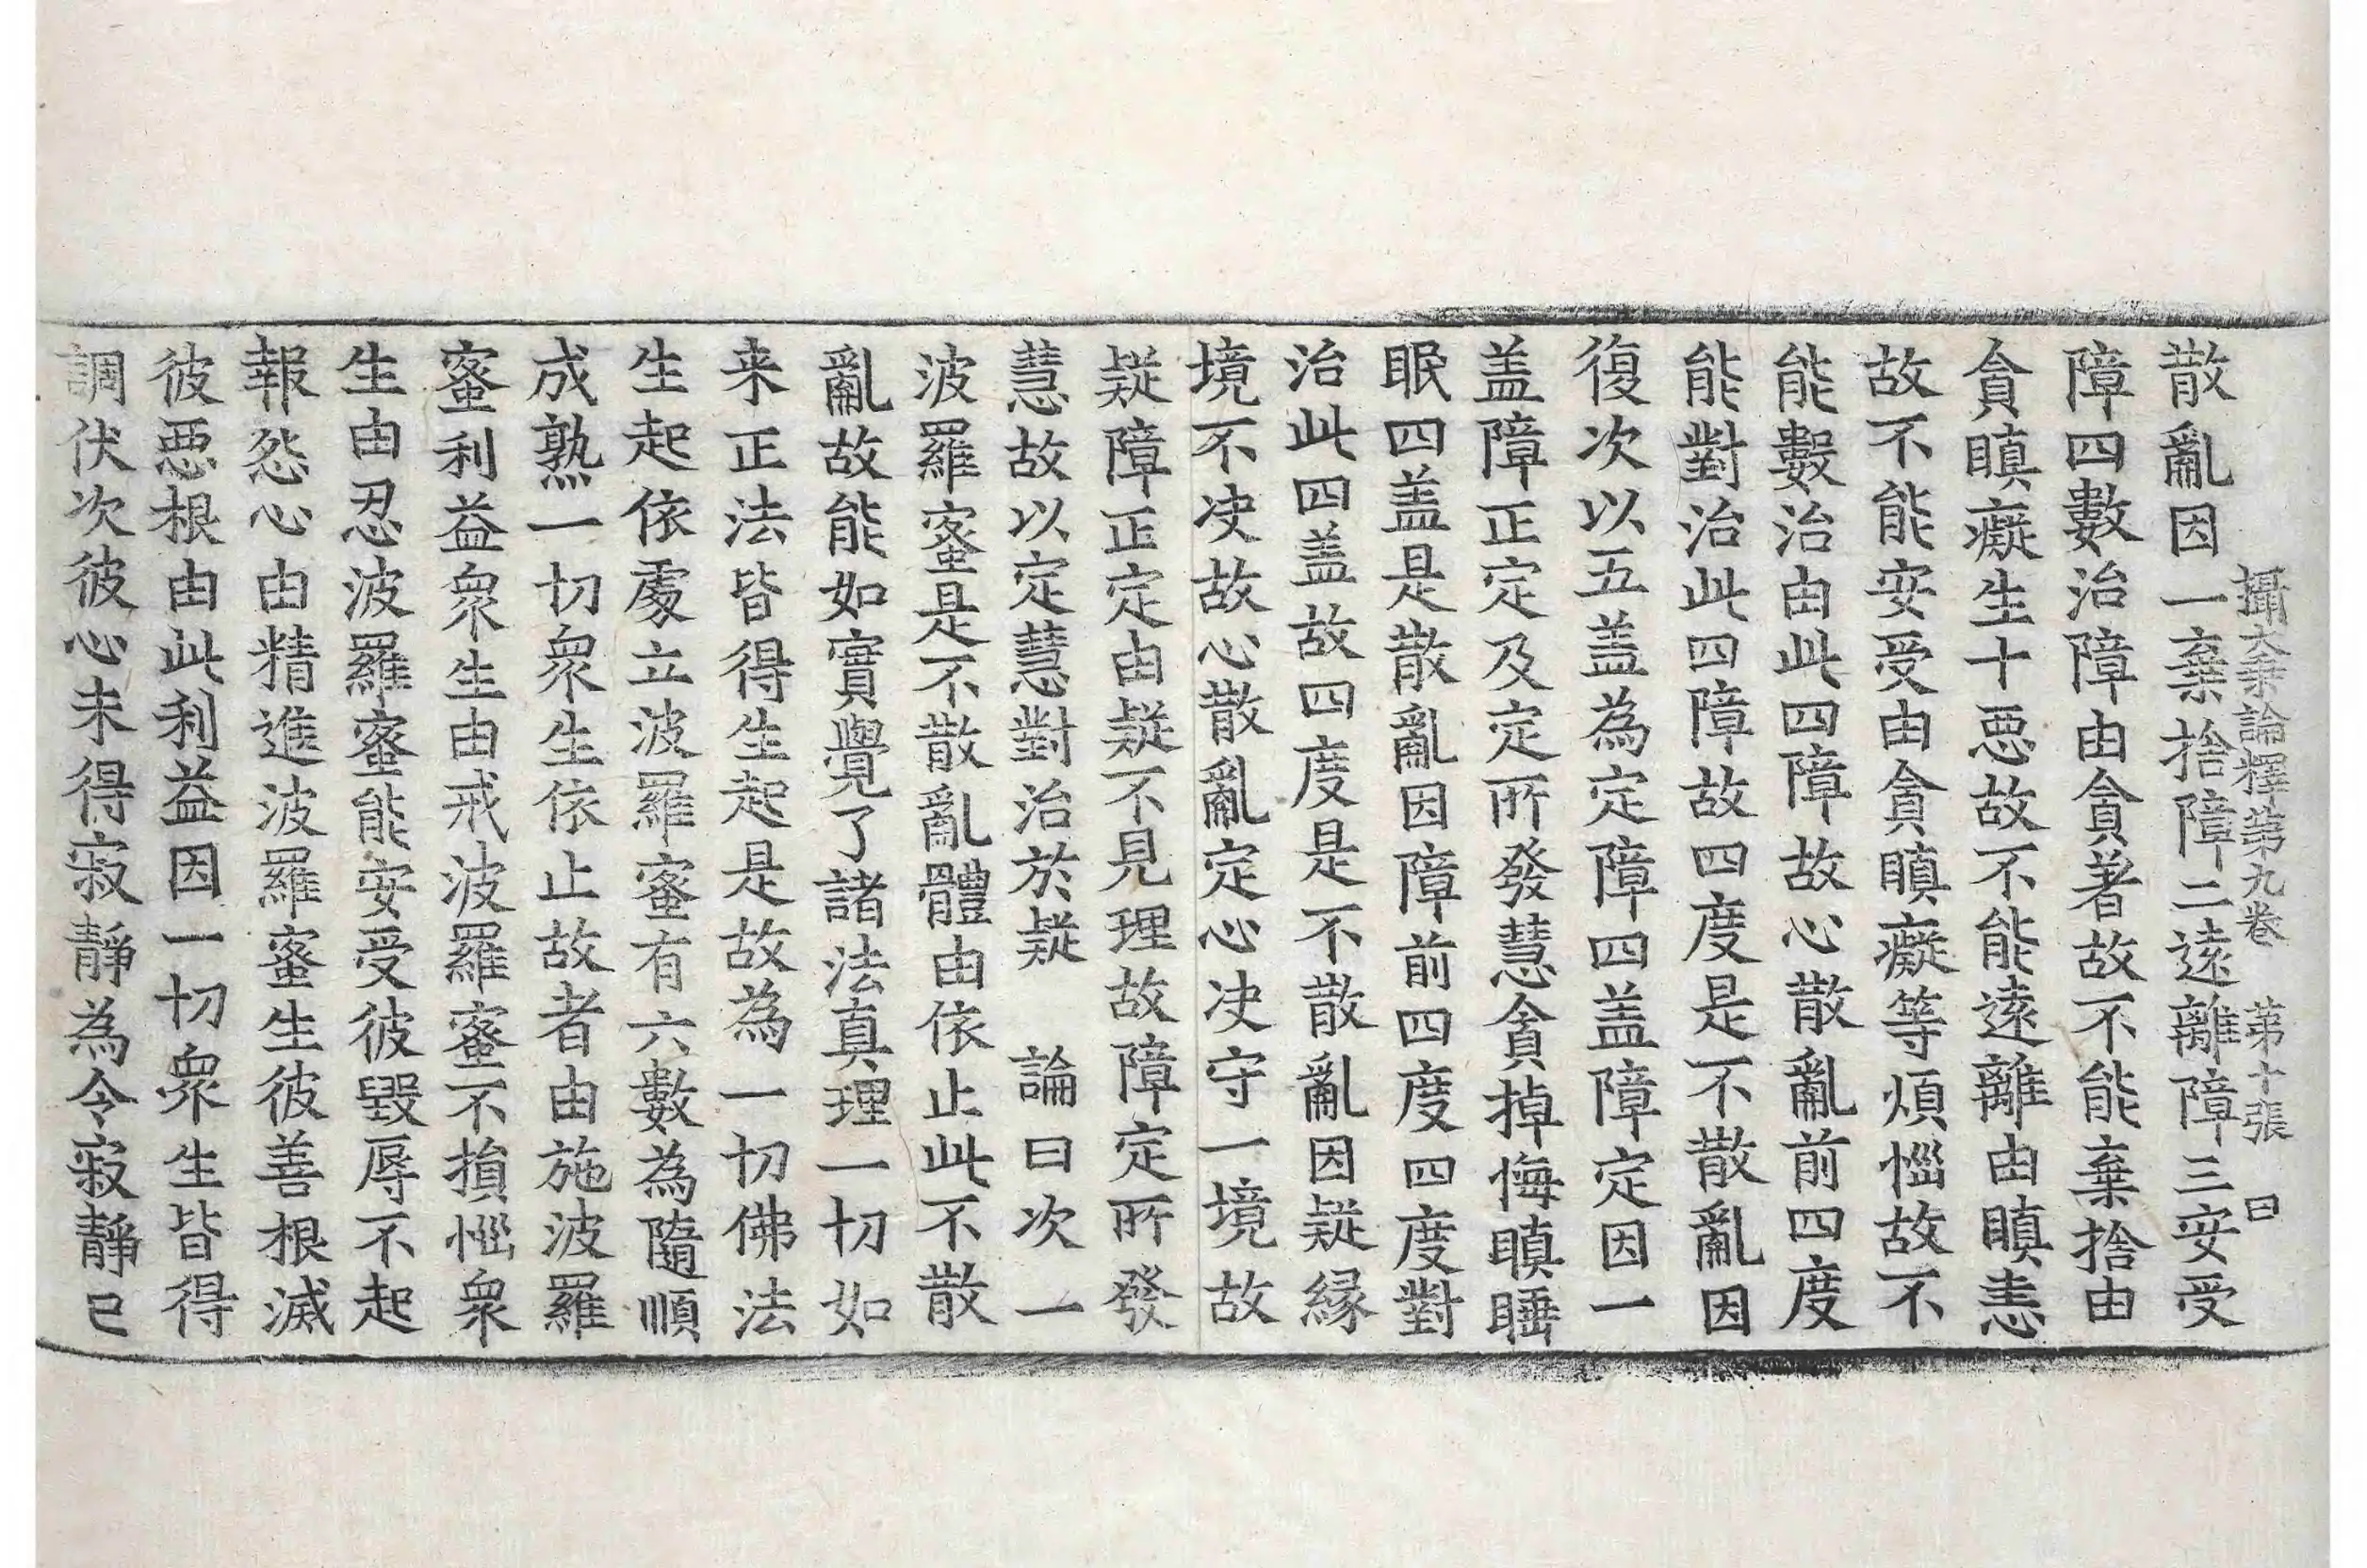 攝大乗論釋第九卷 苐十張 曰
散亂因一棄捨障二逺離障三安受
障四數治障由貪著故不能棄捨由
貪瞋癡生十惡故不能逺離由瞋恚
故不能安受由貪瞋癡等煩惱故不
能數治由此四障故心散亂前四度
能對治此四障故四度是不散亂因
復次以五盖為定障四盖障定因一
盖障正定及定所發慧貪掉悔瞋睡
眠四盖是散亂因障前四度四度對
治此四盖故四度是不散亂因疑緣
境不决故心散亂定心决守一境故
疑障正定由疑不見理故障定所發
慧故以定慧對治於疑 論曰次一
波羅蜜是不散亂體由依止此不散
亂故能如實覺了諸法真理一切如
来正法皆得生起是故為一切佛法
生起依處立波羅蜜有六數為隨順
成熟一切衆生依止故者由施波羅
蜜利益衆生由戒波羅蜜不損惱衆
生由忍波羅蜜能安受彼毀辱不起
報怨心由精進波羅蜜生彼善根滅
彼惡根由此利益因一切衆生皆得
調伏次彼心未得寂靜為令寂靜已